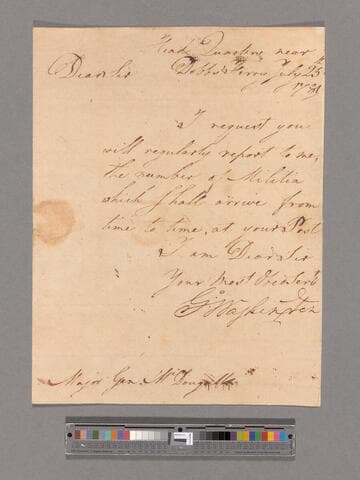 Head Quarters near
Dear Sir Dobbs Ferry July 25th
1781
I request you
will regularly report to me,
the number of Militia
which shall arrive from
time to time, at your Post
I am Dear Sir
Your Most Obed Serv
Go Washington
Major Gen. McDougall